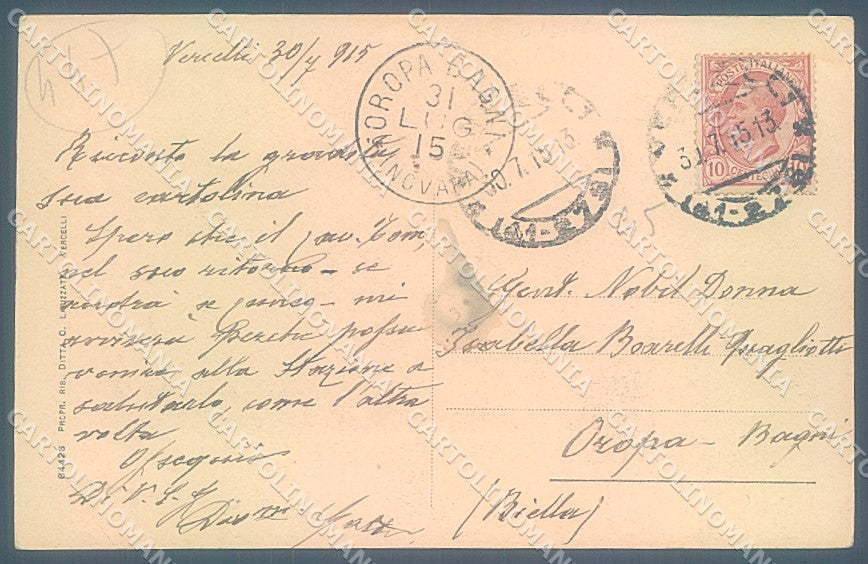 Vercelli 30/7 915
Ricevuto la gradita
sua cartolina
Spero che il Cav. Com,
nel suo ritorno - se
potrà e - mi
avviserà perchè possa
venire alla Stazione a
salutarlo, come l'altra
volta
Ossequi
Di V. S. Ill
Dev.mi
Gent. Nobil Donna
Isabella Boarelli Quagliotti
Oropa - Bagni
(Biella)
OROPA BAGNI
31
LUG
15
NOVARA
30.7.15 13
30.7.15 13
POSTE ITALIANE
10
64426 PROPR. RIS. DITTA C. VERCELLI
CARTOLINOMANIA